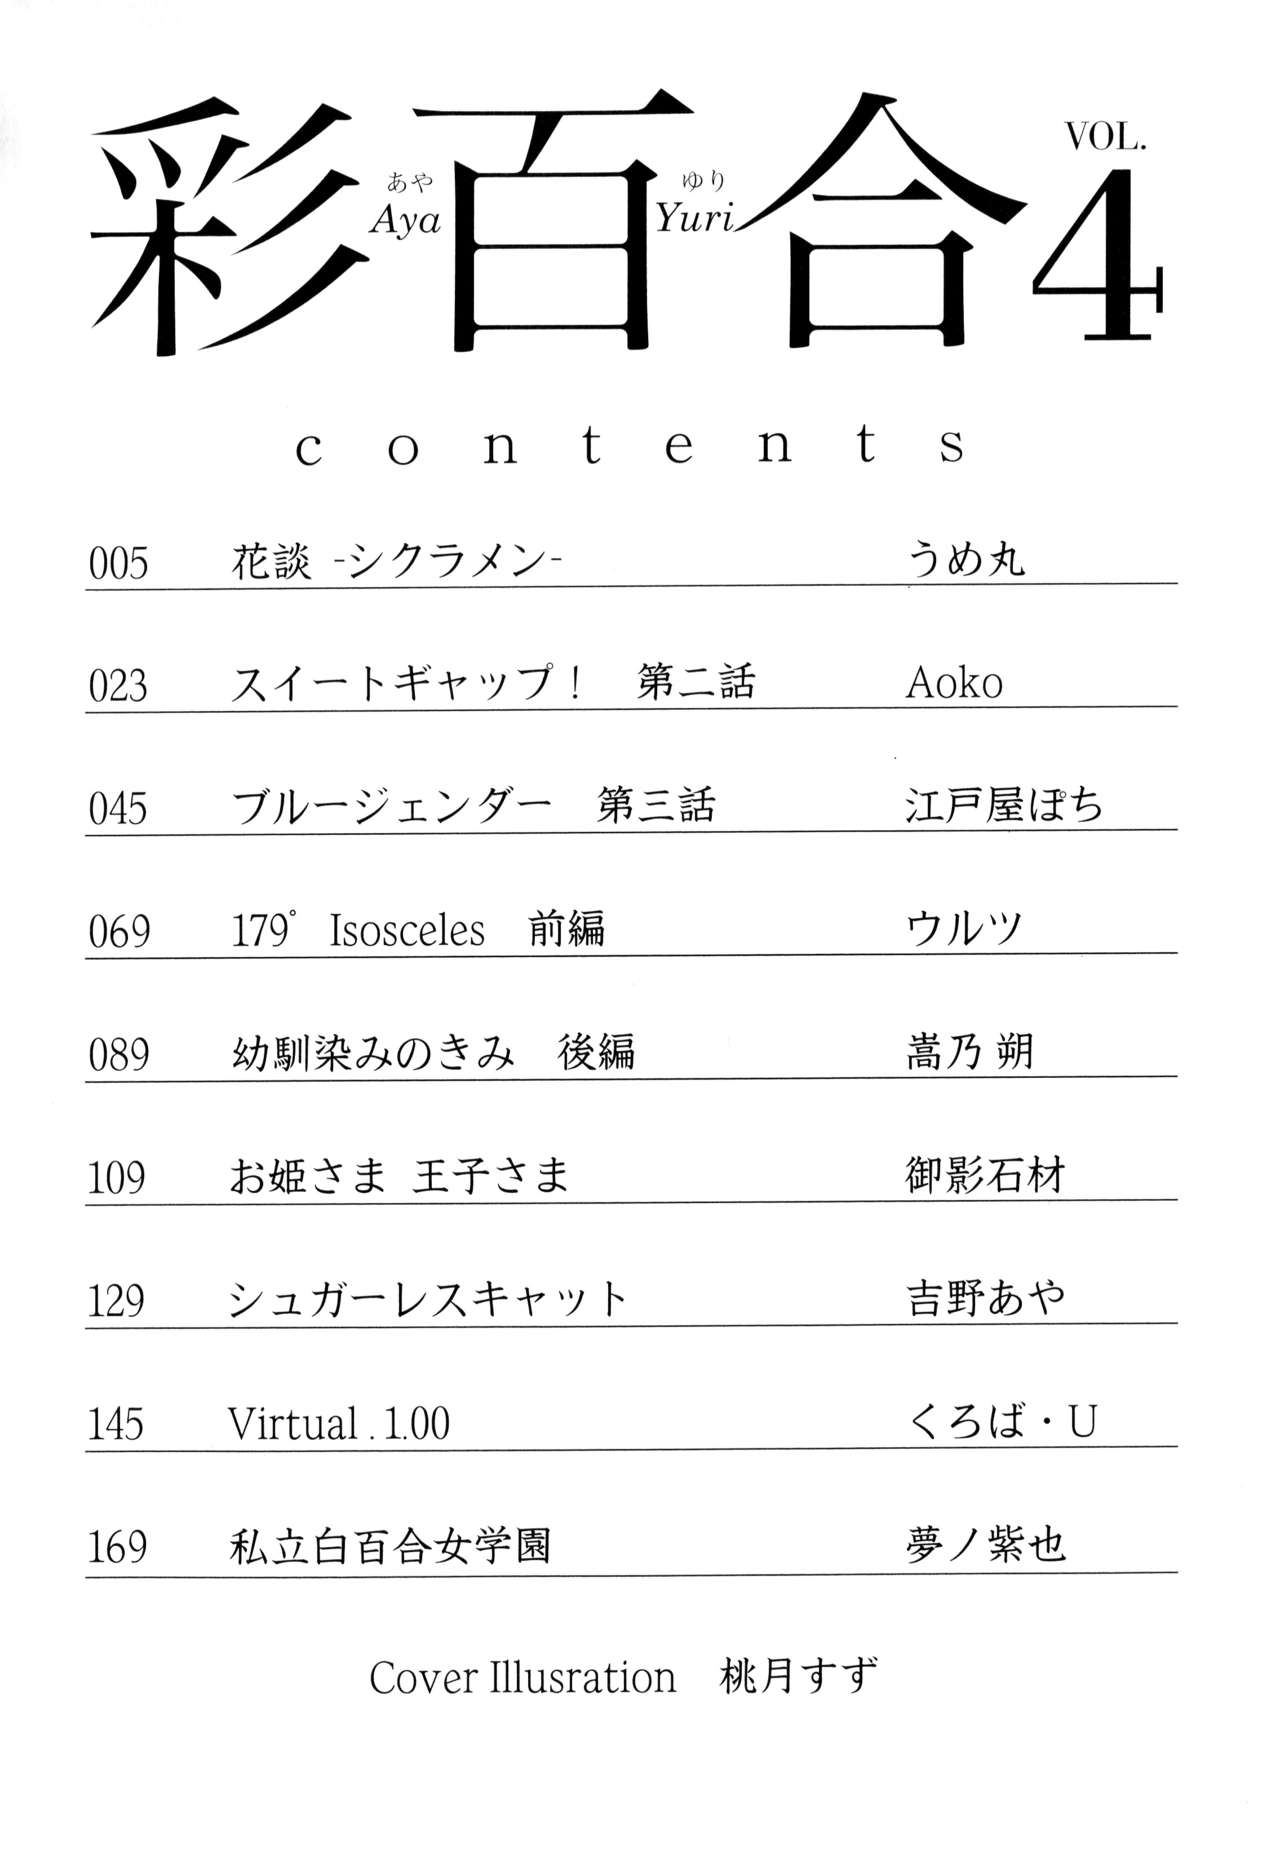 彩百合 VOL.4
あや ゆり
Aya Yuri
contents
005 花談 -シクラメン- うめ丸
023 スイートギャップ！ 第二話 Aoko
045 ブルージェンダー 第三話 江戸屋ぽち
069 179° Isosceles 前編 ウルツ
089 幼馴染みのきみ 後編 嵩乃 朔
109 お姫さま 王子さま 御影石材
129 シュガーレスキャット 吉野あや
145 Virtual . 1.00 くろば・U
169 私立白百合女学園 夢ノ紫也
Cover Illusration 桃月すず